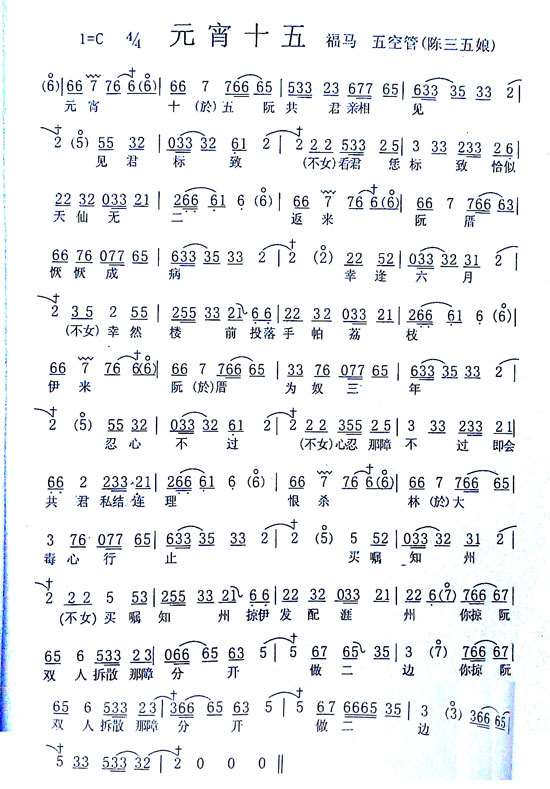 1=C 4/4 元宵十五 福马 五空管(陈三五娘)
(6)|66 7 76 6(6)|66 7 766 65|533 23 677 65|633 35 33 2|
元宵 十(於)五阮共君亲相 见
2 (5) 55 32|033 32 61 6|2 2 2 533 25|3 33 233 26|
见君 标 致 (不女)看君 恁标 致 恰似
22 32 033 21|266 61 6 (6)|66 7 76 6(6)|66 7 766 63|
天仙无 二 返来 阮厝
66 76 077 65|633 35 33 2|2 (2) 22 52|033 32 31 2|
恹恹成 病 幸逢 六 月
2 35 2 55|533 33 21 66|22 32 033 21|266 61 6 (6)|
(不女)幸然 楼 前投落手帕荔 枝
66 7 76 6(6)|66 7 766 65|533 23 677 65|633 35 33 2|
伊来 阮(於)厝 为奴三 年
2 (5) 55 32|033 32 61 6|2 2 2 355 25|3 33 233 21|
忍心 不 过 (不女)心忍那障 不 过 即会
66 2 233 21|266 61 6 (6)|66 7 76 6(6)|66 7 766 65|
共君私结连 理 恨杀 林(於)大
3 76 077 65|633 35 33 2|2 (5) 5 52|033 32 31 2|
毒心行 止 买嘱 知 州
2 2 2 5 53|255 33 21 66|22 32 033 21|66 6(7) 766 67|
(不女)买嘱 知 州 掠伊发配涯 州 你掠阮
65 6 533 23|066 65 63 5|5 65 65 35|3 (7) 766 67|
双人拆散那障 分 开 做二 边 你掠阮
65 65 533 23|366 65 63 5|5 67 6665 35|3 (3) 366 65|
双人拆散那障 分 开 做二 边
5 33 533 32|2 0 0 0‖